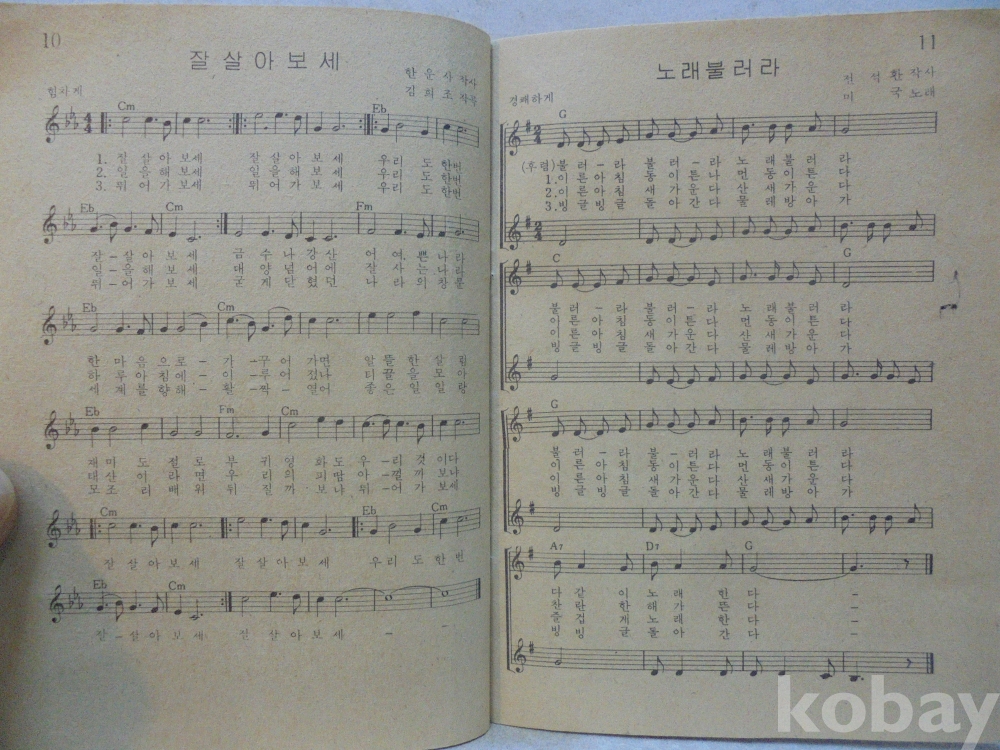 10
잘 살 아 보 세
한 운 사 작사
힘차게
김 희 조 작곡
Cm Eb
1. 잘 살 아 보세 잘 살 아 보 세 우리 도 한번
2. 일 을 해 보세 일 을 해 보 세 우리 도 한번
3. 뛰 어 가 보세 뛰 어 가 보 세 우리 도 한번
Eb Cm Fm
잘 - 살 아 보 세 금 수 나 강 산 어 여 쁜 나 라
일 - 을 해 보 세 대 양 넘 어 에 잘 사 는 나 라
뛰 - 어 가 보 세 굳 게 닫 혔 던 나 라 의 창 문
Eb Cm
한 마 음 으 로 - 가 - 꾸 어 가면 알 뜰 한 살 림
하 루 아 침 에 - 이 - 루 어 졌나 티 끌 을 모 아
세 계 를 향 해 - 활 - 짝 - 열어 좋 은 일 일 랑
Eb Fm Cm
재 미 도 절 로 부 귀 영 화 도 우 - 리 것 이 다
태 산 이 라 면 우 리 의 피 땀 아 - 낄 까 보 냐
모 조 리 배 워 뒤 질 까 보 냐 뛰 - 어 가 보 세
Cm Eb Cm
잘 살 아 보 세 잘 살 아 보 세 우 리 도 한 번
Eb Cm
잘 - 살 아 보 세 잘 살 아 보 세 - -
11
노 래 불 러 라
전 석 환 작 사
경쾌하게
미 국 노 래
G
(후렴) 불 러 - 라 불 러 - 라 노 래 불 러 라
1. 이 른 아 침 동 이 튼 다 먼 동 이 튼 다
2. 이 른 아 침 새 가 운 다 산 새 가 운 다
3. 빙 글 빙 글 돌 아 간 다 물 래 방 아 가
C G
불 러 - 라 불 러 - 라 노 래 불 러 라
이 른 아 침 동 이 튼 다 먼 동 이 튼 다
이 른 아 침 새 가 운 다 산 새 가 운 다
빙 글 빙 글 돌 아 간 다 물 레 방 아 가
G
불 러 - 라 불 러 - 라 노 래 불 러 라
이 른 아 침 동 이 튼 다 먼 동 이 튼 다
이 른 아 침 새 가 운 다 산 새 가 운 다
빙 글 빙 글 돌 아 간 다 물 레 방 아 가
A7 D7 G
다 같 이 노 래 한 다 -
찬 란 한 해 가 뜬 다 -
즐 겁 게 노 래 한 다 -
빙 빙 글 돌 아 간 다 -
kobay